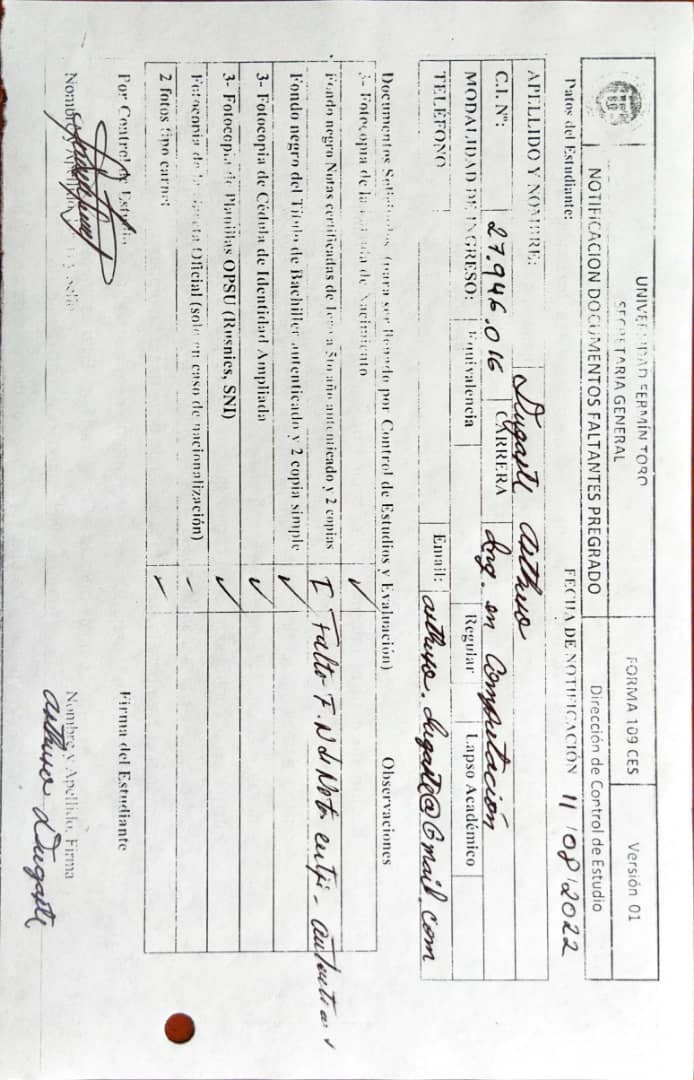 UNIVERSIDAD FERMÍN TORO
SECRETARIA GENERAL
FORMA 109 CES
Versión 01
NOTIFICACION DOCUMENTOS FALTANTES PREGRADO
Dirección de Control de Estudio
Datos del Estudiante:
FECHA DE NOTIFICACIÓN 11/08/2022
APELLIDO Y NOMBRE: Dugarte Arthuro
C.I. Nº: 27.946.016 CARRERA Ing. en Computación
MODALIDAD DE INGRESO: Equivalencia Regular Lapso Académico
TELÉFONO Email: arthuro.dugarte@Gmail.com
Documentos Solicitados (para ser llenado por Control de Estudios y Evaluación) Observaciones
3- Fotocopia de la Partida de Nacimiento ✓
Fondo negro Notas certificadas de 1ero a 5to año autenticado y 2 copias I Falto F.N de Not.
Fondo negro del Título de Bachiller autenticado y 2 copia simple ✓
3- Fotocopia de Cédula de Identidad Ampliada ✓
3- Fotocopia de Planillas OPSU (Rusnies, SNI) ✓
Fotocopia de la Gaceta Oficial (sólo en caso de nacionalización) -
2 fotos tipo carnet ✓
Por Control de Estudio
Firma del Estudiante
Nombre y Apellido, Firma y sello
Nombre y Apellido, Firma
Arthuro Dugarte